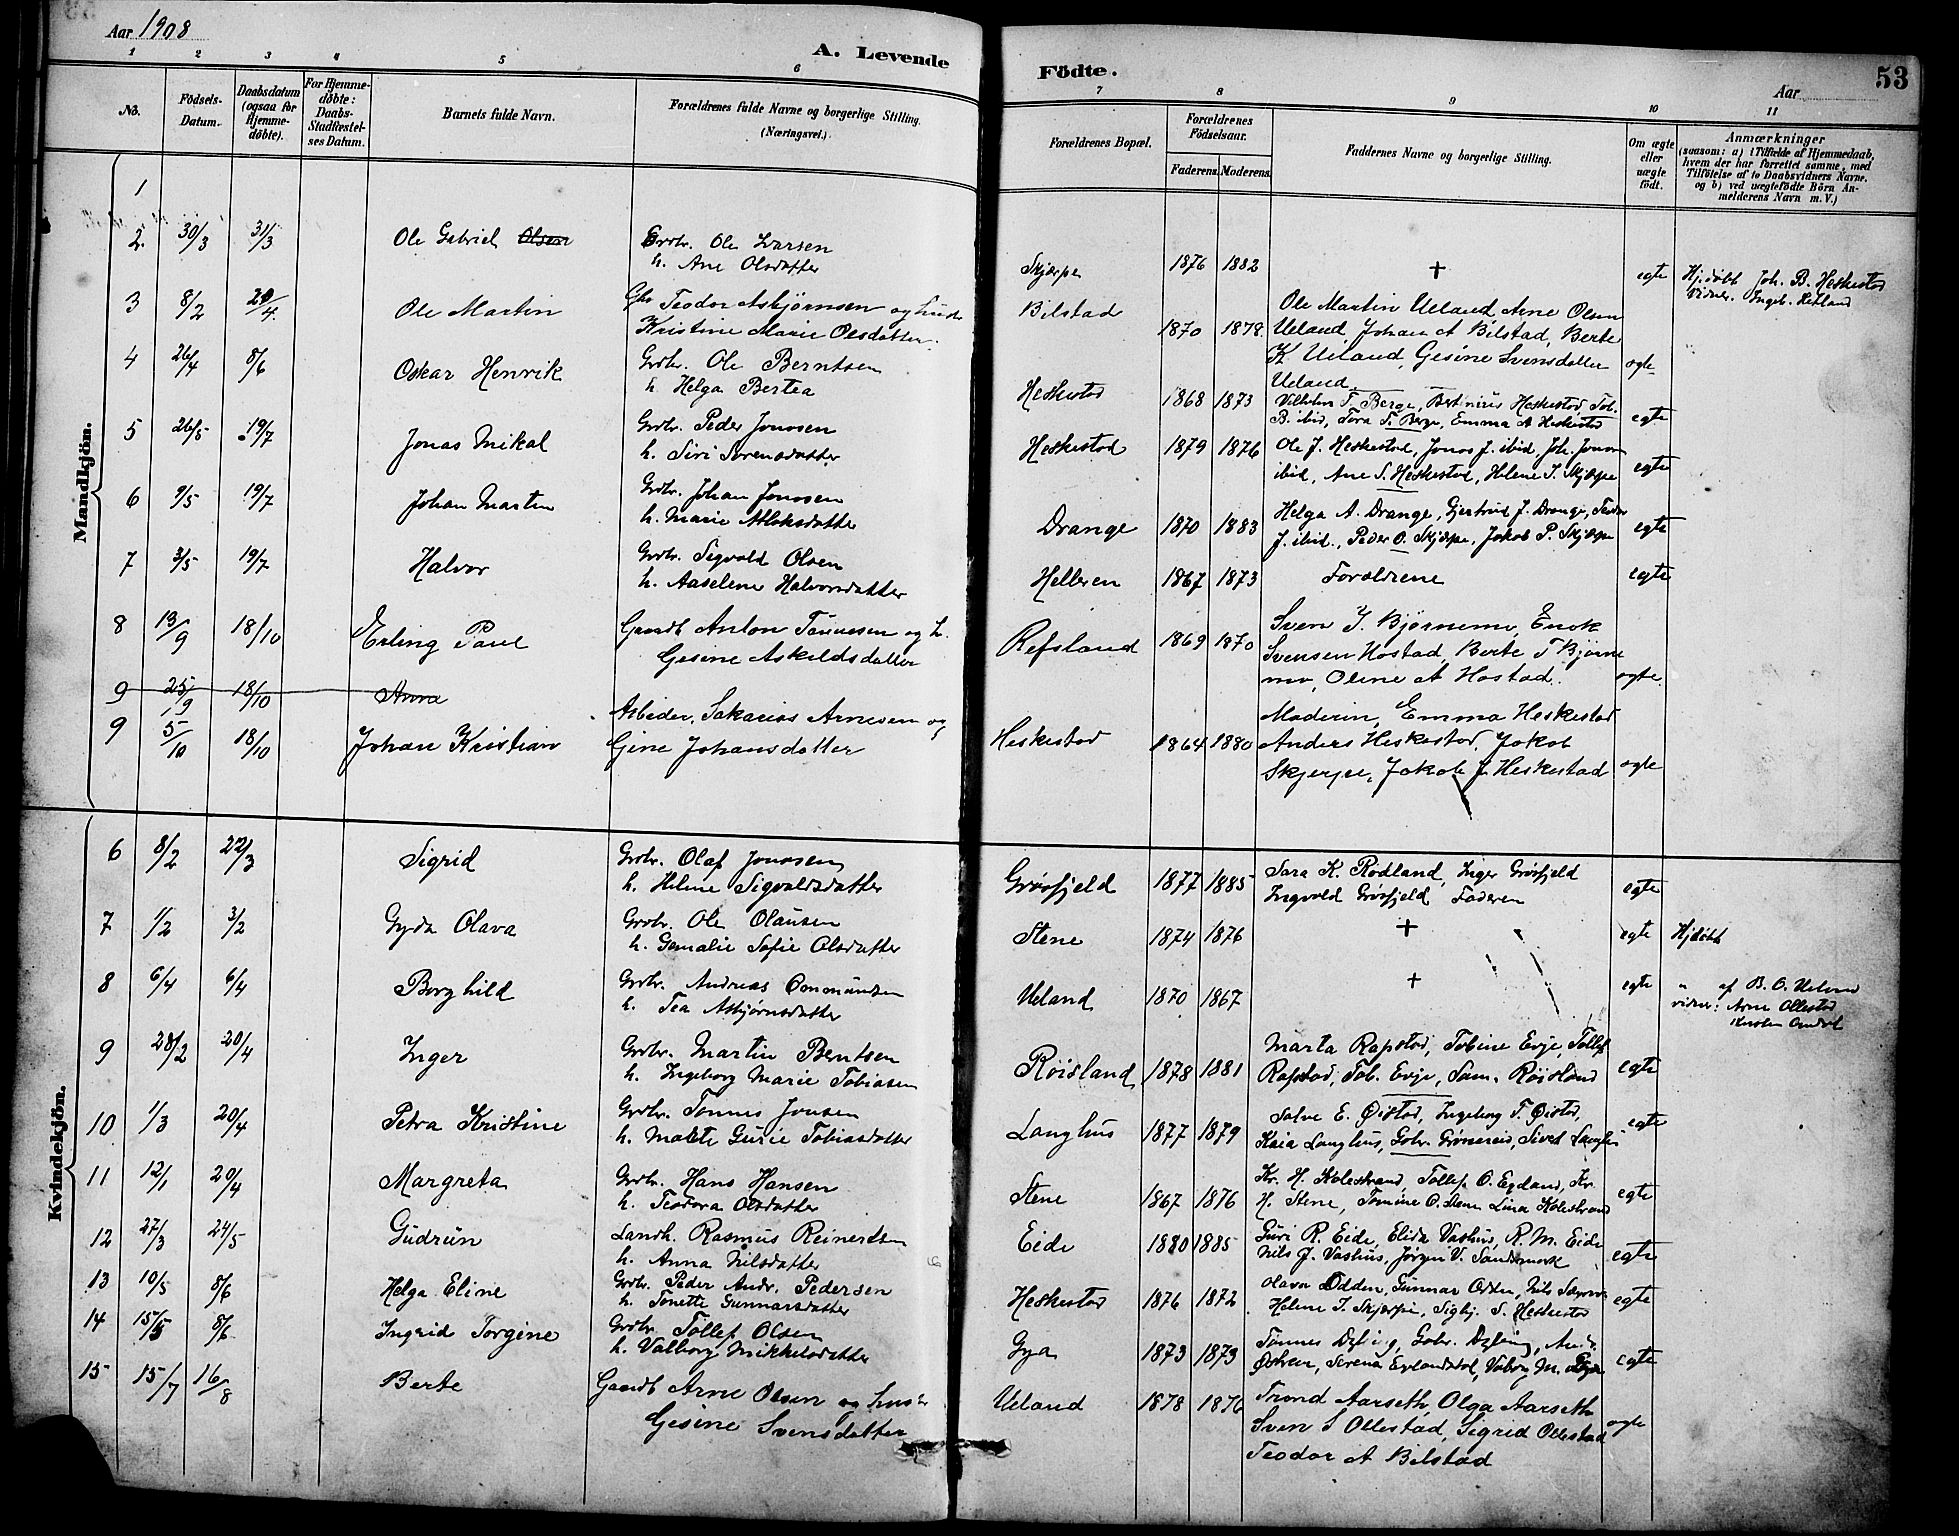 Aar 1908
A. Levende
Födte.
53
Aar
1 2 3 4 5 6 7 8 9 10 11
No.
Födsels-Datum.
Daabsdatum (ogsaa for Hjemme-döbte).
For Hjemme-döbte: Daabs-Stadfæstel-ses Datum.
Barnets fulde Navn.
Forældrenes fulde Navne og borgerlige Stilling. (Næringsvei.)
Forældrenes Bopæl.
Forældrenes Födselsaar.
Faderens. Moderens.
Faddernes Navne og borgerlige Stilling.
Om ægte eller uægte födt.
Anmærkninger
(saasom: a) i Tilfælde af Hjemmedaab,
hvem der har forrettet samme, med
Tilföielse af to Daabsvidners Navne.
og b) ved uægtefödte Börn An-
melderens Navn m. V.)
Mandkjön.
1
2. 30/3 31/3 Ole Gabriel Olsen Grdbr. Ole Larsen
h. Ane Olsdatter Skjærpe 1876 1882 + egte Hj.döbt Joh. B. Heskestad
Vidner. Ingeb. Hetland
3 8/2 20/4 Ole Martin Gbr Teodor Asbjørnsen og hustr
Kristine Marie Olsdatter. Bilstad 1870 1878. Ole Martin Ueland Arne Olsen
Ueland, Johan A Bilstad, Berte
K Ueland, Gesine Svensdatter
Ueland ægte
4 26/4 8/6 Oskar Henrik Grdbr. Ole Berntsen
h. Helga Bertea Heskestad 1868 1873 Vilhelm T. Berge, Bertinius Heskestad, Tob.
B. ibid, Tora T. Berge, Emma A Heskestad egte
5 26/5 19/7 Jonas Mikal Grdbr. Peder Jonasen
h. Siri Sørensdatter Heskestad 1879 1876 Ole J. Heskestad, Jonas J. ibid, Joh. Jonas
ibid, Ane S. Heskestad, Helene T. Skjærpe egte
6 9/5 19/7 Johan Martin Grdbr. Johan Jonasen
h. Marie Atlaksdatter Drange 1870 1883 Helga A. Drange, Gjertrud J. Drange, Teodor
J. ibid., Peder O. Skjærpe, Jakob P. Skjærpe egte
7 3/5 19/7 Halvor Grdbr. Sigvald Olsen
h. Aaselene Halvorsdatter Helleren 1867 1873 Forældrene egte
8 13/9 18/10 Erling Paul Gaardb Anton Tønnesen og h.
Gesine Askildsdatter Refsland 1869 1870 Sven J. Bjørnemo, Enok
Svensen Hostad, Berte T Bjørne
mo, Oline A Hostad. ægte.
9 25/9 18/10 Anna
9 5/10 18/10 Johan Kristian Arbeider. Sakarias Arnesen og
Gine Johansdatter Heskestad 1864 1880 Moderen, Emma Heskestad
Anders Heskestad, Jakob
Skjerpe, Jakob J Heskestad ægte
Kvindekjön.
6 8/2 22/3 Sigrid Grdbr. Olaf Jonassen
h. Helene Sigvaldsdatter Grøsfjeld 1877 1885 Sara K. Rodland, Inger Grøsfjeld
Ingvald Grøsfjeld Faderen egte
7 1/2 3/2 Gyda Olava Grdbr. Ole Olausen
h. Gemalie Sofie Olsdatter Stene 1874 1876 + egte Hjdöbt
8 6/4 6/4 Borghild Grdbr. Andreas Ommundsen
h. Tea Asbjørnsdatter Ueland 1870 1867 + egte " af B. O. Ueland
vidner: Arne Ollestad
9 28/2 20/4 Inger Grdbr. Martin Bentsen
h. Ingeborg Marie Tobiasen Røisland 1878 1881 Marta Rapstad, Tobine Evje, Tollef
Rapstad, Tob. Evje, Sam. Røisland egte
10 1/3 20/4 Petra Kristine Grdbr. Tønnes Jonsen
h. Malete Gurie Tobiasdatter Langhus 1877 1879 Salve E. Øistad, Ingeborg T. Øistad,
Kaia Langhus, Gabr. Grøneeid, Sived Langhus egte
11 12/1 20/4 Margreta Grdbr. Hans Hansen
h. Teodora Olsdatter Stene 1867 1876 Kr. H. Kolestrand, Tollef O. Egeland, Kr.
H. Stene, Tomine O. Stene Lina Kolestrand egte
12 27/3 24/5 Gudrun Landh. Rasmus Reinertsen
h. Anna Nilsdatter Eide 1880 1885 Guri R. Eide, Elida Vashus, R. M. Eide
Nils J. Vashus, Jørgen V. Sandsmark egte
13 10/5 8/6 Helga Eline Grdbr. Peder Andr. Pedersen
h. Tonette Gunnarsdatter Heskestad 1876 1872 Olava Odden, Gunnar Odden, Nils
Helene T. Skjærpe, Sigbj. S. Heskestad egte
14 15/5 8/6 Ingrid Torgine Grdbr. Tollef Olsen
h. Valborg Mikkelsdatter Gya 1873 1873 Tønnes Dyfing, Gabr. Dyfing, And.
Østren, Serena Eylandsdal, Valbrg M. Gya egte
15 15/7 16/8 Berte Gaardb Arne Olsen og hustr
Gesine Svensdatter Ueland 1878 1876 Trond Aarseth, Olga Aarseth
Sven S Ollestad, Sigrid Ollestad
Teodor A Bilstad ægte